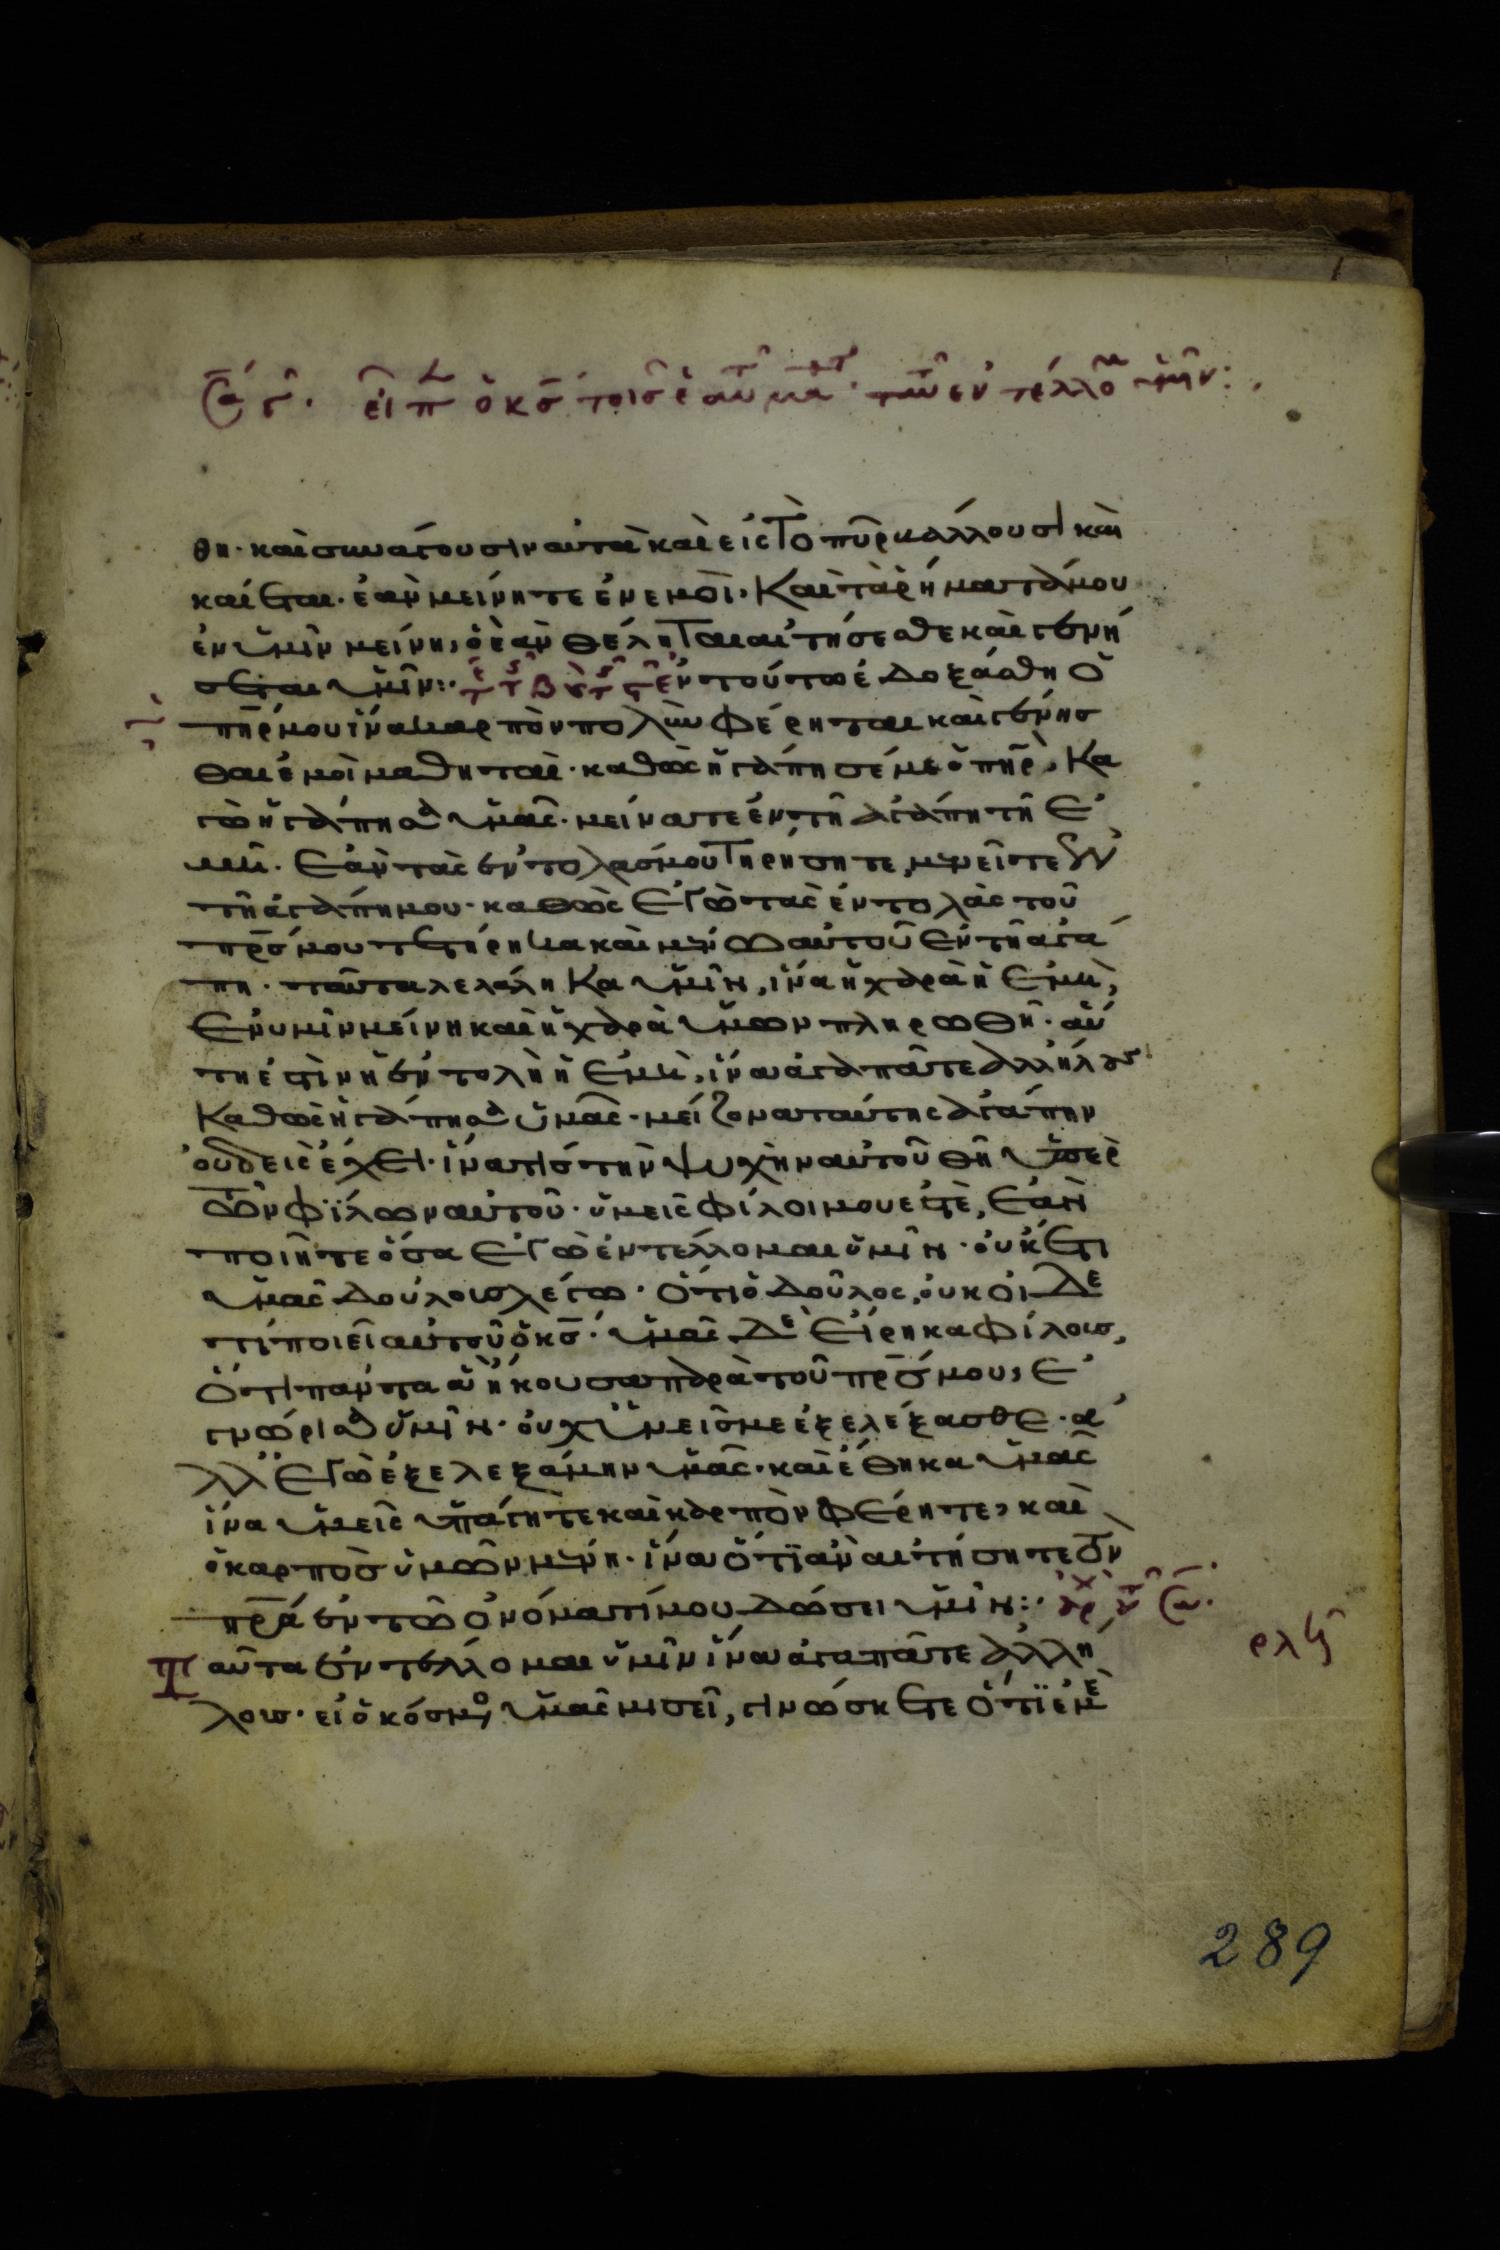 εἶπ ὁ κς τοῖς ἑαυ μα ταυ ἐντέλλομ ὑμῖν:
θη· καὶ συνάγουσιν αυτὰ καὶ εἰς τὸ πῦρ βάλλουσι καὶ
καίεται· ἐὰν μείνητε ἐν ἐμοὶ· Καὶ τὰ ῥήματά μου
ἐν ὑμῖν μείνη, ὃ ἐὰν θέληται αἰτήσεσθε καὶ γενή
σεται ὑμῖν:· ἐν τούτω ἐδοξάσθη ὁ
πηρ μου ἵνα καρπὸν πολὺν φέρηται καὶ γένησ
θαι ἐμοὶ μαθηταὶ· καθὼς ἠγάπησέ με ὁ πηρ, Κα
γὼ ἠγάπησα ὑμᾶς· μείνατε ἐν τῆ ἀγάπη τῆ ἐ
μῆ. Ἐὰν τὰς ἐντολάς μου τηρήσητε, μενεῖτε ἐν
τῆ ἀγάπη μου· καθὼς ἐγὼ τὰς ἐντολὰς τοῦ
πρς μου τετήρηκα καὶ μένω αὐτοῦ ἐν τῆ ἀγά
πη· ταῦτα λελάληκα ὑμῖν, ἵνα ἡ χαρὰ ἡ ἐμὴ,
ἐν υμῖν μείνη καὶ ἡ χαρὰ ὑμων πληρωθῆ· αὕ
τη ἐστὶν ἡ ἐντολὴ ἡ ἐμὴ, ἵνα ἀγαπᾶτε ἀλλήλους
Καθὼς ἠγάπησα ὑμᾶς· μείζονα ταύτης ἀγάπην
οὐδεὶς ἔχει· ἵνα τίς τὴν ψυχὴν αὐτοῦ θῆ ὑπὲρ
τῶν φίλων αὐτοῦ· ὑμεῖς φίλοι μου ἐστὲ, ἐὰν
ποιῆτε ὅσα ἐγὼ ἐντέλλομαι ὑμῖν· οὐκέτι
ὑμᾶς δούλους λέγω· ὅτι ὁ δοῦλος, οὐκ οἶδε
τί ποιεῖ αὐτοῦ ὁ κς· ὑμᾶς δὲ εἴρηκα φίλους,
ὅτι πάντα ἃ ἤκουσα παρὰ τοῦ πρς μου, ἐ
γνώρισα ὑμῖν· οὐχ ὑμεῖς με ἐξελέξασθε· ἀ
λλ ἐγὼ ἐξελεξάμην ὑμᾶς· καὶ ἔθηκα ὑμᾶς
ἵνα ὑμεῖς ὑπάγητε καὶ καρπὸν φέρητε, καὶ
ὁ καρπὸς ὑμῶν μένη· ἵνα ὅτι ἂν αἰτήσητε τὸν
πρα ἐν τῶ ὀνόματί μου δώσει ὑμῖν:·
ρλζ
Ταῦτα ἐντέλλομαι ὑμῖν ἵνα ἀγαπᾶτε ἀλλή
λους· εἰ ὁ κόσμος ὑμᾶς μισεῖ, γινώσκετε ὅτι ἐμὲ
289